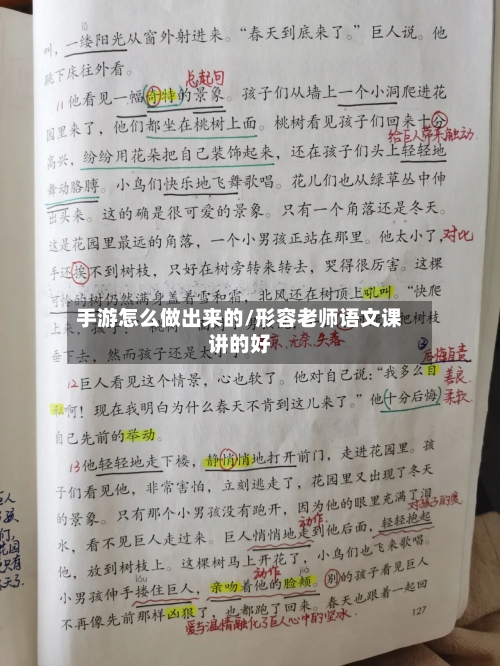 叫,一缕阳光从窗外射进来。“春天到底来了。”巨人说。他
跳下床往外看。
总起句
11他看见一幅奇特的景象。孩子们从墙上一个小洞爬进花
园里来了,他们都坐在桃树上面。桃树看见孩子们回来十分
给巨人带来触动
高兴,纷纷用花朵把自己装饰起来,还在孩子们头上轻轻地
舞动胳膊。小鸟们快乐地飞舞歌唱。花儿们也从绿草丛中伸
出头来。这的确是很可爱的景象。只有一个角落还是冬天。
这是花园里最远的角落,一个小男孩正站在那里。他太小了,
对比
手还挨不到树枝,只好在树旁转来转去,哭得很厉害。这棵
可怜的树仍然满身盖着雪和霜,北风还在树顶上吼叫。“快爬
手游怎么做出来的/形容老师语文课
讲的好
树枝
垂下去,然而孩子还是太小
无奈
②
后悔自责
12巨人看见这个情景,心也软了。他对自己说:“我多么自
善良
私啊!现在我明白为什么春天不肯到这儿来了。”他十分后悔
柔软
自己先前的举动。
13他轻轻地走下楼,静悄悄地打开前门,走进花园里。孩
子们看见他,非常害怕,立刻逃走了,花园里又出现了冬天
的景象。只有那个小男孩没有跑开,因为他的眼里充满了泪
动作
水,看不见巨人走过来。巨人悄悄地走到他后面,轻轻抱起
他,放到树枝上。这棵树马上开花了,小鸟们也飞来歌唱。
动作
lǒu
jiá
小男孩伸手搂住巨人,亲吻着他的脸颊。别的孩子看见巨人
不再像先前那样凶狠了,也都跑了回来。春天也跟着一起回
127
爱与温情融化了巨人心中的坚冰.